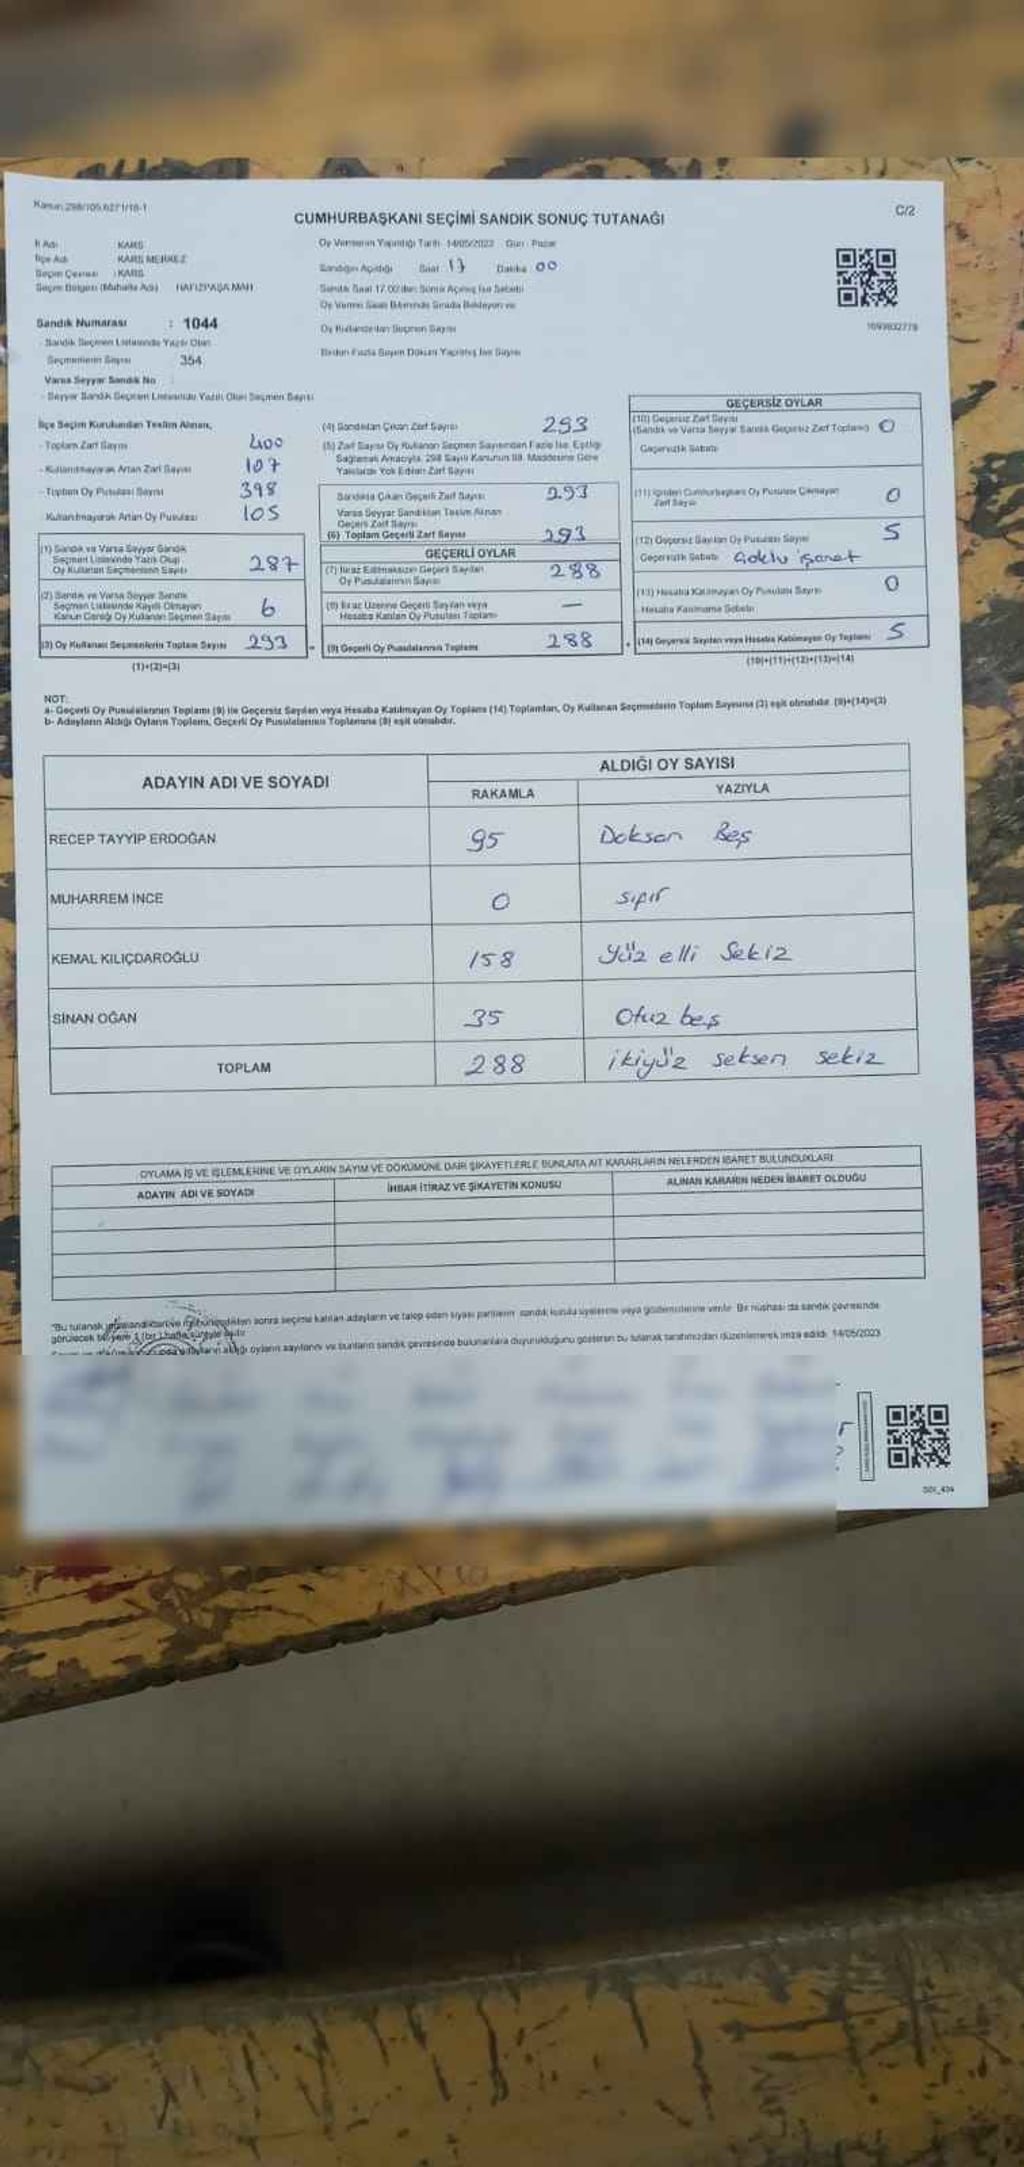 Kanun:298/105,6271/18-1
C/2
CUMHURBAŞKANI SEÇİMİ SANDIK SONUÇ TUTANAĞI
İl Adı : KARS
İlçe Adı : KARS MERKEZ
Seçim Çevresi : KARS
Seçim Bölgesi (Muhalle Adı) HAFIZPAŞA MAH
Sandık Numarası : 1044
Sandık Seçmen Listesinde Yazılı Olan
Seçmenlerin Sayısı 354
Varsa Seyyar Sandık No
- Seyyar Sandık Seçmen Listesinde Yazılı Olan Seçmen Sayısı
Oy Vermenin Yapıldığı Tarih 14/05/2023 Gün : Pazar
Sandığın Açıldığı Saat 17 Dakika 00
Sandık Saat 17.00'dan Sonra Açılmış İse Sebebi
Oy Verme Saati Bitiminde Sırada Bekleyen ve
Oy Kullandırılan Seçmen Sayısı
Birden Fazla Sayım Döküm Yapılmış İse Sayısı
1093832778
İlçe Seçim Kurulundan Teslim Alınan,
- Toplam Zarf Sayısı 400
- Kullanılmayarak Artan Zarf Sayısı 107
- Toplam Oy Pusulası Sayısı 398
Kullanılmayarak Artan Oy Pusulası 105
(1) Sandık ve Varsa Seyyar Sandık
Seçmen Listesinde Yazılı Olup
Oy Kullanan Seçmenlerin Sayısı 287
(2) Sandık ve Varsa Seyyar Sandık
Seçmen Listesinde Kayıtlı Olmayan
Kanun Gereği Oy Kullanan Seçmen Sayısı 6
(3) Oy Kullanan Seçmenlerin Toplam Sayısı 293
(1)+(2)=(3)
(4) Sandıktan Çıkan Zarf Sayısı 293
(5) Zarf Sayısı Oy Kullanan Seçmen Sayısından Fazla İse, Eşitliği
Sağlamak Amacıyla, 298 Sayılı Kanunun 98. Maddesine Göre
Yakılarak Yok Edilen Zarf Sayısı
Sandıkta Çıkan Geçerli Zarf Sayısı 293
Varsa Seyyar Sandıktan Teslim Alınan
Geçerli Zarf Sayısı
(6) Toplam Geçerli Zarf Sayısı 293
GEÇERLİ OYLAR
(7) İtiraz Edilmeksizin Geçerli Sayılan
Oy Pusulalarının Sayısı 288
(8) İtiraz Üzerine Geçerli Sayılan veya
Hesaba Katılan Oy Pusulası Toplamı —
(9) Geçerli Oy Pusulalarının Toplamı 288
GEÇERSİZ OYLAR
(10) Geçersiz Zarf Sayısı
(Sandık ve Varsa Seyyar Sandık Geçersiz Zarf Toplamı) 0
Geçersizlik Sebebi
(11) İçinden Cumhurbaşkanı Oy Pusulası Çıkmayan
Zarf Sayısı 0
(12) Geçersiz Sayılan Oy Pusulası Sayısı 5
Geçersizlik Sebebi Çoklu işaret
(13) Hesaba Katılmayan Oy Pusulası Sayısı 0
Hesaba Katılmama Sebebi
(14) Geçersiz Sayılan veya Hesaba Katılmayan Oy Toplamı 5
(10)+(11)+(12)+(13)=(14)
NOT:
a- Geçerli Oy Pusulalarının Toplamı (9) ile Geçersiz Sayılan veya Hesaba Katılmayan Oy Toplamı (14) Toplamları, Oy Kullanan Seçmenlerin Toplam Sayısına (3) eşit olmalıdır. (9)+(14)=(3)
b- Adayların Aldığı Oyların Toplamı, Geçerli Oy Pusulalarının Toplamına (9) eşit olmalıdır.
ADAYIN ADI VE SOYADI ALDIĞI OY SAYISI
RAKAMLA YAZIYLA
RECEP TAYYİP ERDOĞAN 95 Doksan Beş
MUHARREM İNCE 0 sıfır
KEMAL KILIÇDAROĞLU 158 Yüz elli Sekiz
SİNAN OĞAN 35 Otuz beş
TOPLAM 288 ikiyüz seksen sekiz
OYLAMA İŞ VE İŞLEMLERİNE VE OYLARIN SAYIM VE DÖKÜMÜNE DAİR ŞİKAYETLERLE BUNLARA AİT KARARLARIN NELERDEN İBARET BULUNDUKLARI
ADAYIN ADI VE SOYADI İHBAR İTİRAZ VE ŞİKAYETİN KONUSU ALINAN KARARIN NEDEN İBARET OLDUĞU
"Bu tutanak sonra seçime katılan adayların ve talep eden siyasi partilerin sandık kurulu üyelerine veya gözlemcilerine verilir. Bir nüshası da sandık çevresinde
görülecek bir yere 1 (bir) hafta süreyle asılır
oyların sayılarını ve bunların sandık çevresinde bulunanlara duyurulduğunu gösteren bu tutanak tarafımızdan düzenlenerek imza edildi. 14/05/2023